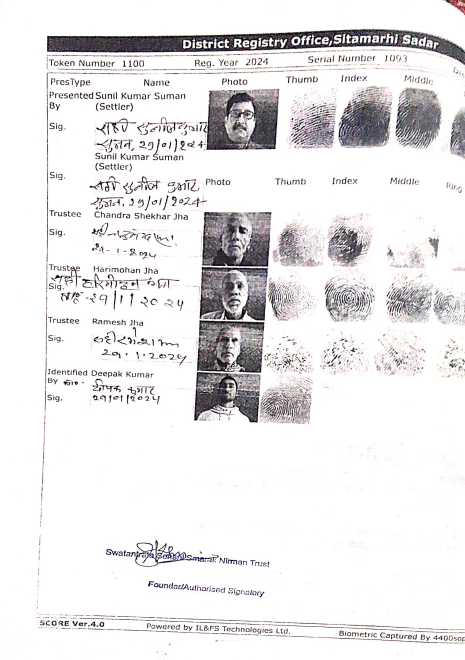 District Registry Office,Sitamarhi Sadar
Token Number 1100 Reg. Year 2024 Serial Number 1093
PresType Name Photo Thumb Index Middle
Presented Sunil Kumar Suman
By (Settler)
Sig. सही सुनील कुमार
सुमन, 29/01/2024
Sunil Kumar Suman
(Settler)
Sig. सही सुनील कुमार Photo Thumb Index Middle Ring
सुमन, 29/01/2024
Trustee Chandra Shekhar Jha
Sig.
29-1-2024
Trustee Harimohan Jha
Sig. सही हरिमोहन झा
29/1/2024
Trustee Ramesh Jha
Sig.
29.1.2024
Identified Deepak Kumar
By दीपक कुमार
Sig. 29/01/2024
Swatantrata Smarak Nirman Trust
Foundar/Authorised Signatory
SCORE Ver.4.0 Powered by IL&FS Technologies Ltd. Biometric Captured By 4400sop